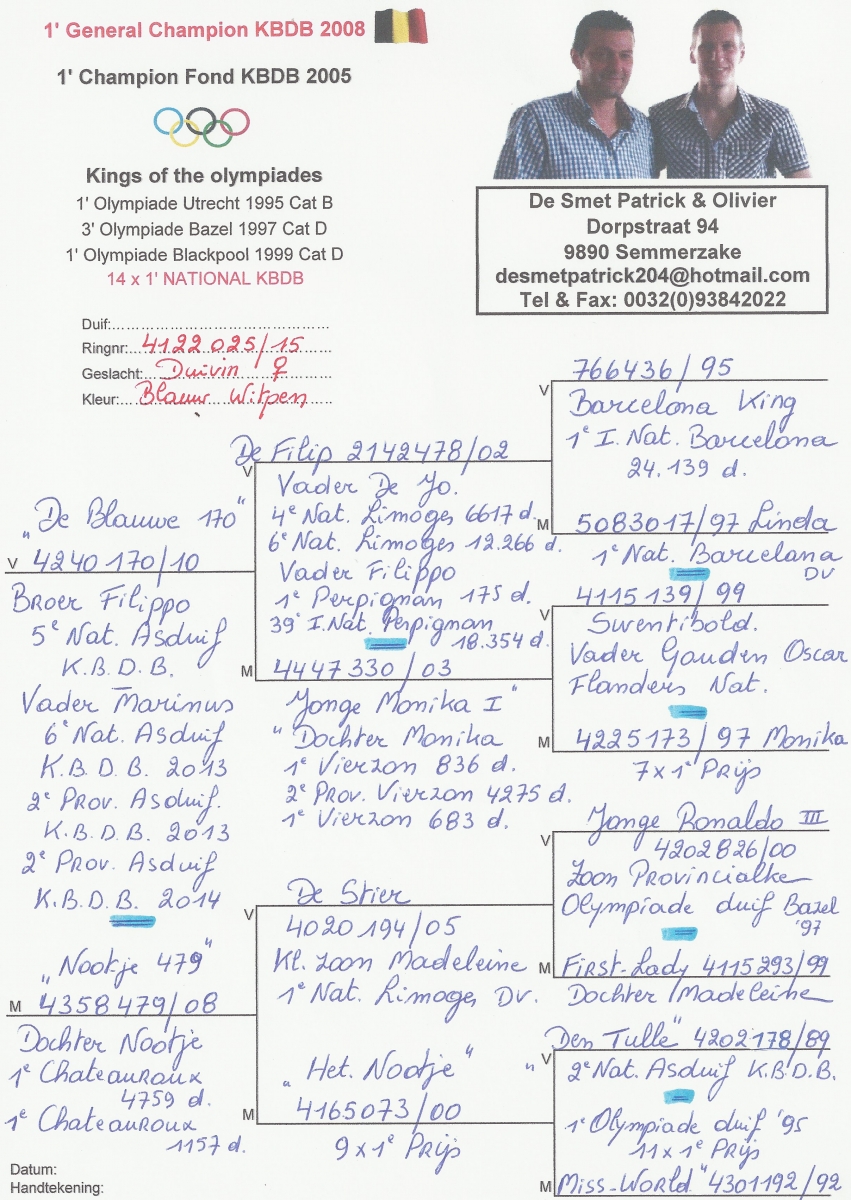 1' General Champion KBDB 2008
1' Champion Fond KBDB 2005
Kings of the olympiades
1' Olympiade Utrecht 1995 Cat B
3' Olympiade Bazel 1997 Cat D
1' Olympiade Blackpool 1999 Cat D
14 x 1' NATIONAL KBDB
De Smet Patrick & Olivier
Dorpstraat 94
9890 Semmerzake
desmetpatrick204@hotmail.com
Tel & Fax: 0032(0)93842022
Duif:
Ringnr: 4122025/15
Geslacht: Duivin ♀
Kleur: Blauw Witpen
„De Blauwe 170"
V 4240170/10
Broer Filippo
5e Nat. Asduif
K.B.D.B.
Vader Marinus
6e Nat. Asduif
K.B.D.B. 2013
2e Prov. Asduif.
K.B.D.B. 2013
2e Prov. Asduif
K.B.D.B. 2014
„Nootje 479"
M 4358479/08
Dochter Nootje
1e Chateauroux
4759 d.
1e Chateauroux
1157 d.
De Filip 2142478/02
V
Vader De Jo.
4e Nat. Limoges 6617 d.
6e Nat. Limoges 12.266 d.
Vader Filippo
1e Perpignan 175 d.
39e I.Nat. Perpignan
18.354 d.
M 4447330/03
Jonge Monika I"
" Dochter Monika
1e Vierzon 836 d.
2e Prov. Vierzon 4275 d.
1e Vierzon 683 d.
De Stier
V
4020194/05
Kl. Zoon Madeleine
1e Nat. Limoges DV.
„Het. Nootje"
M 4165073/00
9x1e Prijs
766436/95
V
Barcelona King
1e I. Nat. Barcelona
24.139 d.
M 5083017/97 Linda
1e Nat. Barcelana
DV
4115139/99
V
Swentibold.
Vader Gouden Oscar
Flanders Nat.
M 4225173/97 Monika
7x1e Prijs
Jonge Ronaldo III
V
4202826/00
Zoon Provincialke
Olympiade duif Bazel
'97
M First-Lady 4115293/99
Dochter Madeleine
„Den Tulle" 4202178/89
V
2e Nat. Asduif K.B.D.B.
1e Olympiade duif '95
11x1e Prijs
M Miss-World" 4301192/92
Datum:
Handtekening: